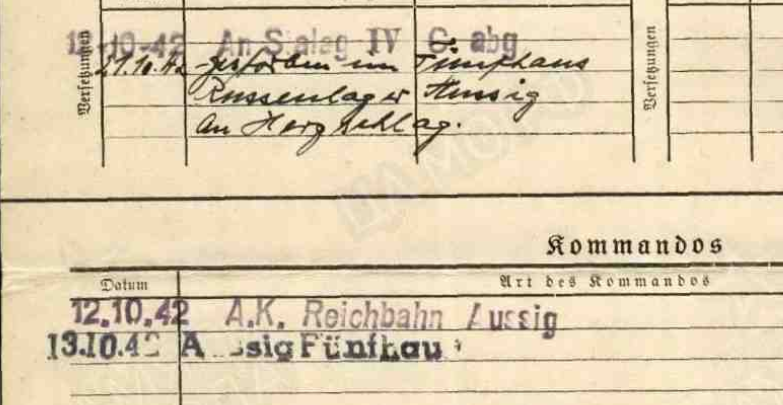 Versetzungen
10-42 An Stalag IV C abg
21.10.42 gestorben im Fünfhaus
Russenlager Aussig
an Herzschlag.
Versetzungen
Kommandos
Datum
Art des Kommandos
12.10.42 A.K. Reichbahn Aussig
13.10.42 Aussig Fünfhau